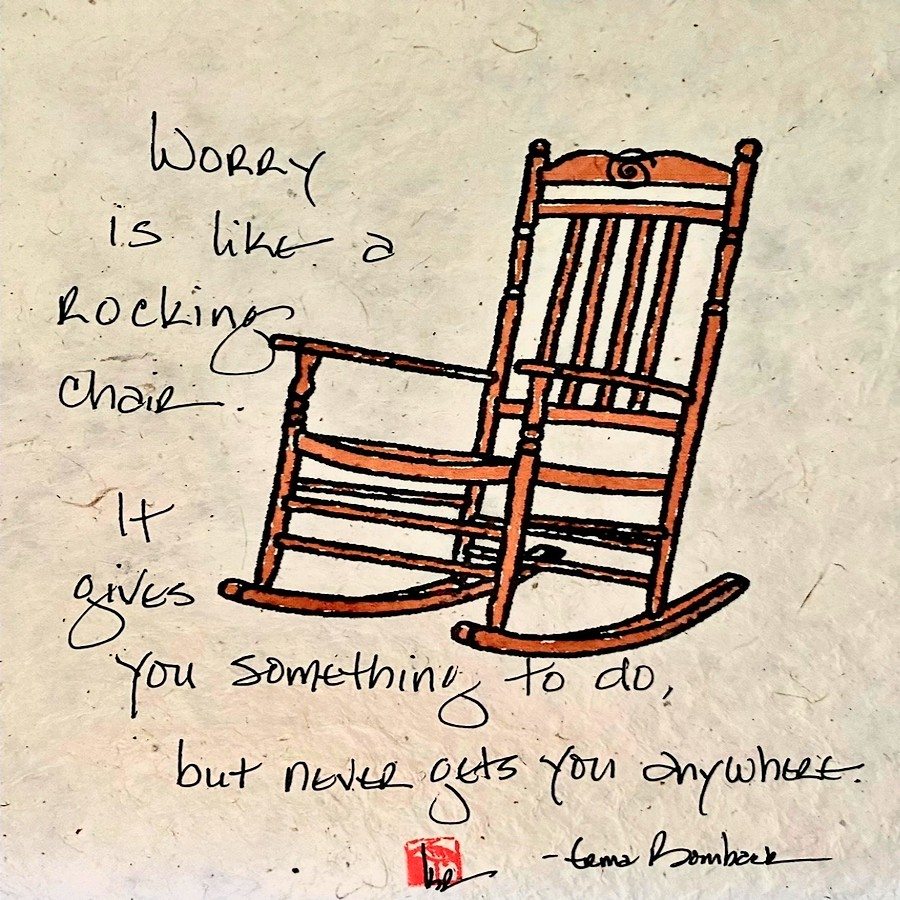 Worry
is like a
Rocking
chair.
It
gives
you something to do,
but never gets you anywhere.
-Erma Bombeck